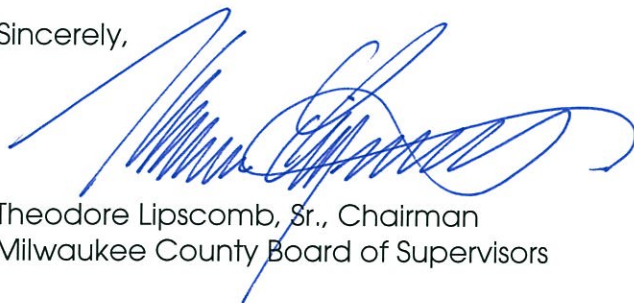 Sincerely,
Theodore Lipscomb, Sr., Chairman
Milwaukee County Board of Supervisors